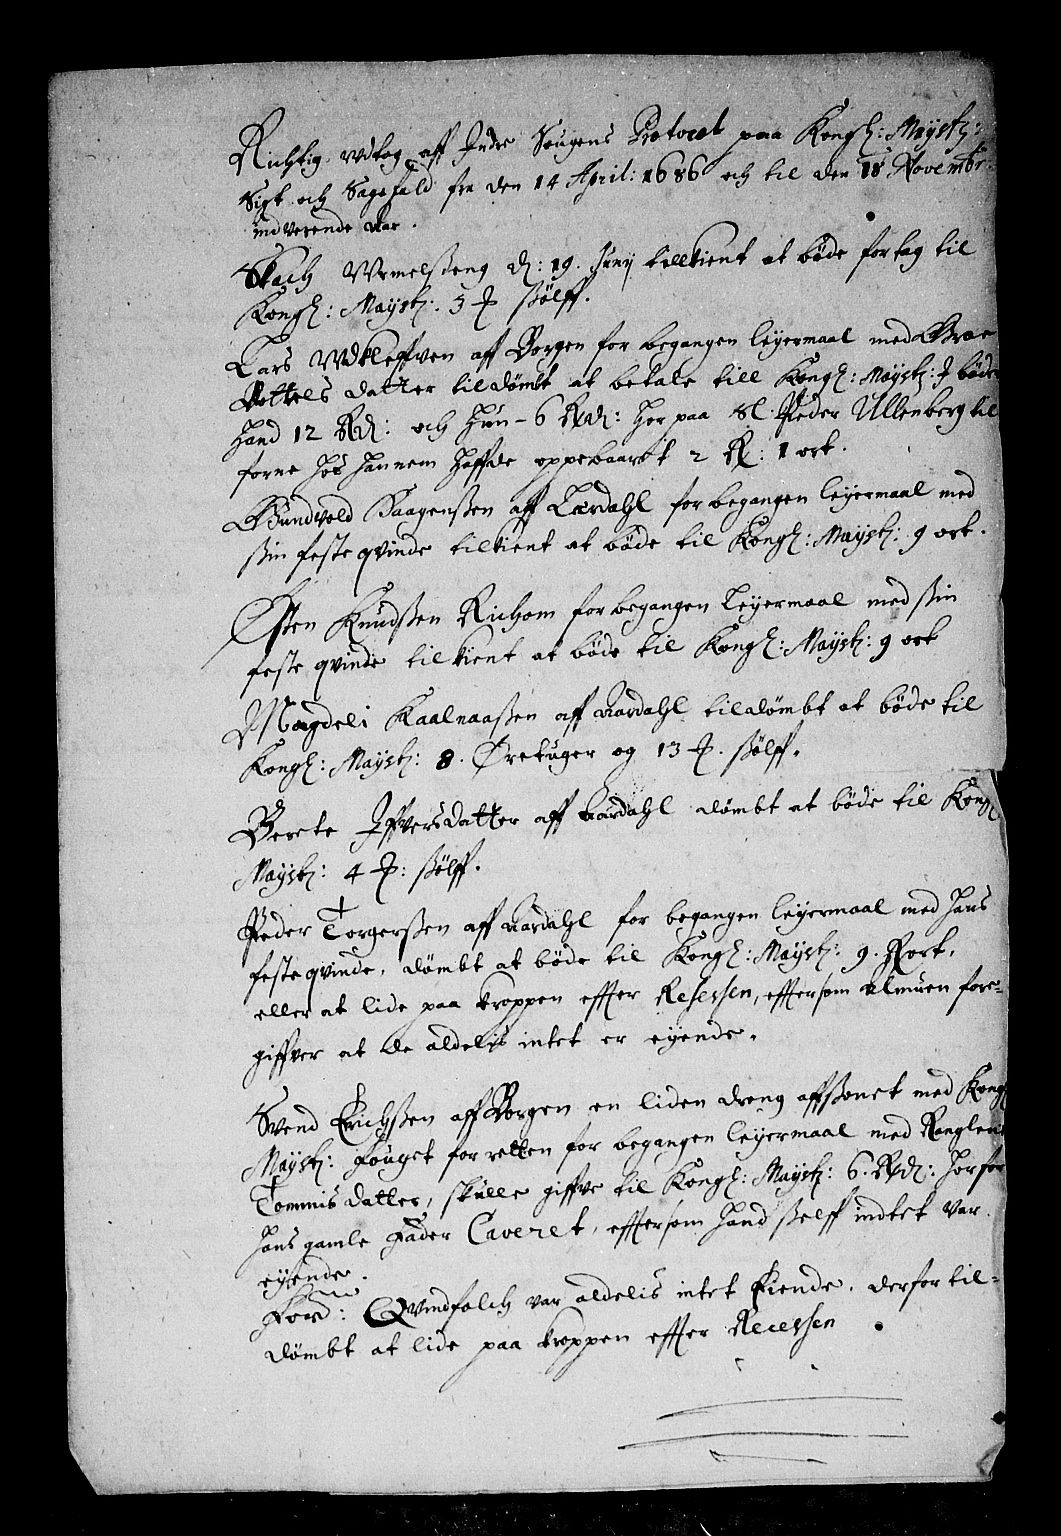 Richtig udtog aff Indre Sougens Protocol paa Kongl: Mayst:
Sigt och Sagefald fra den 14 April: 1686 och til den 18 Novembr.
indverende Aar.
Stach Urmelsteng d: 19. Juny tilltient at bøde for tag til
Kongl: Mayst: 3 ℔ sølff.
Lars Udkleffven aff Borgen for begangen leyermaal med
Dattels datter tildømbt at betale till Kongl: Mayst: J bøde
hand 12 Rd: och hun - 6 Rdr: her paa Sl. Peder Ullenberg til
forne hos hannem haffde oppebaaret 2 R: 1 ort.
Gundvold Haagenssen aff Lærdahl for begangen leyermaal med
sin feste qvinde tiltient at bøde til Kongl: Mayst: 9 ort.
Østen Knudssen Richom for begangen Leyermaal med sin
feste qvinde tiltient at bøde til Kongl: Mayst: 9 ort
Magdeli Kaalnaassen aff Aardahl tildømbt at bøde til
Kongl: Mayst: 8. Øretuger og 13 ℔. sølff.
Berete Iffversdatter aff Aardahl dømbt at bøde til Kongl
Mayst: 4 ℔: sølff.
Peder Torgerssen aff Aardahl for begangen leyermaal med hans
feste qvinde, dømbt at bøde til Kongl: Mayst: 9. Rort,
eller at lide paa kroppen effter Resessen, efftersom almuen fore-
giffver at de aldelis intet er eyende.
Svend Erichssen aff Borgen en liden dreng affsonet med Kongl
Mayst: Fouget for retten for begangen leyermaal med Ranglei
Tommis datter, skulle giffve til Kongl: Mayst: 6. Rdr: herfor
hans gamle Fader Caveret, efftersom hand selff indtet var
eyende.
Ford: Qvindfolch var aldelis intet Eiende, derfor til-
dømbt at lide paa kroppen effter Recessen.